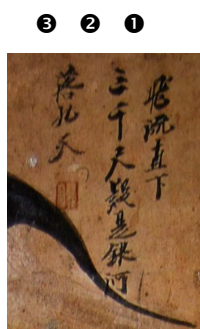 ❸ ❷ ❶
飛流直下
三千尺疑是銀河
落九天